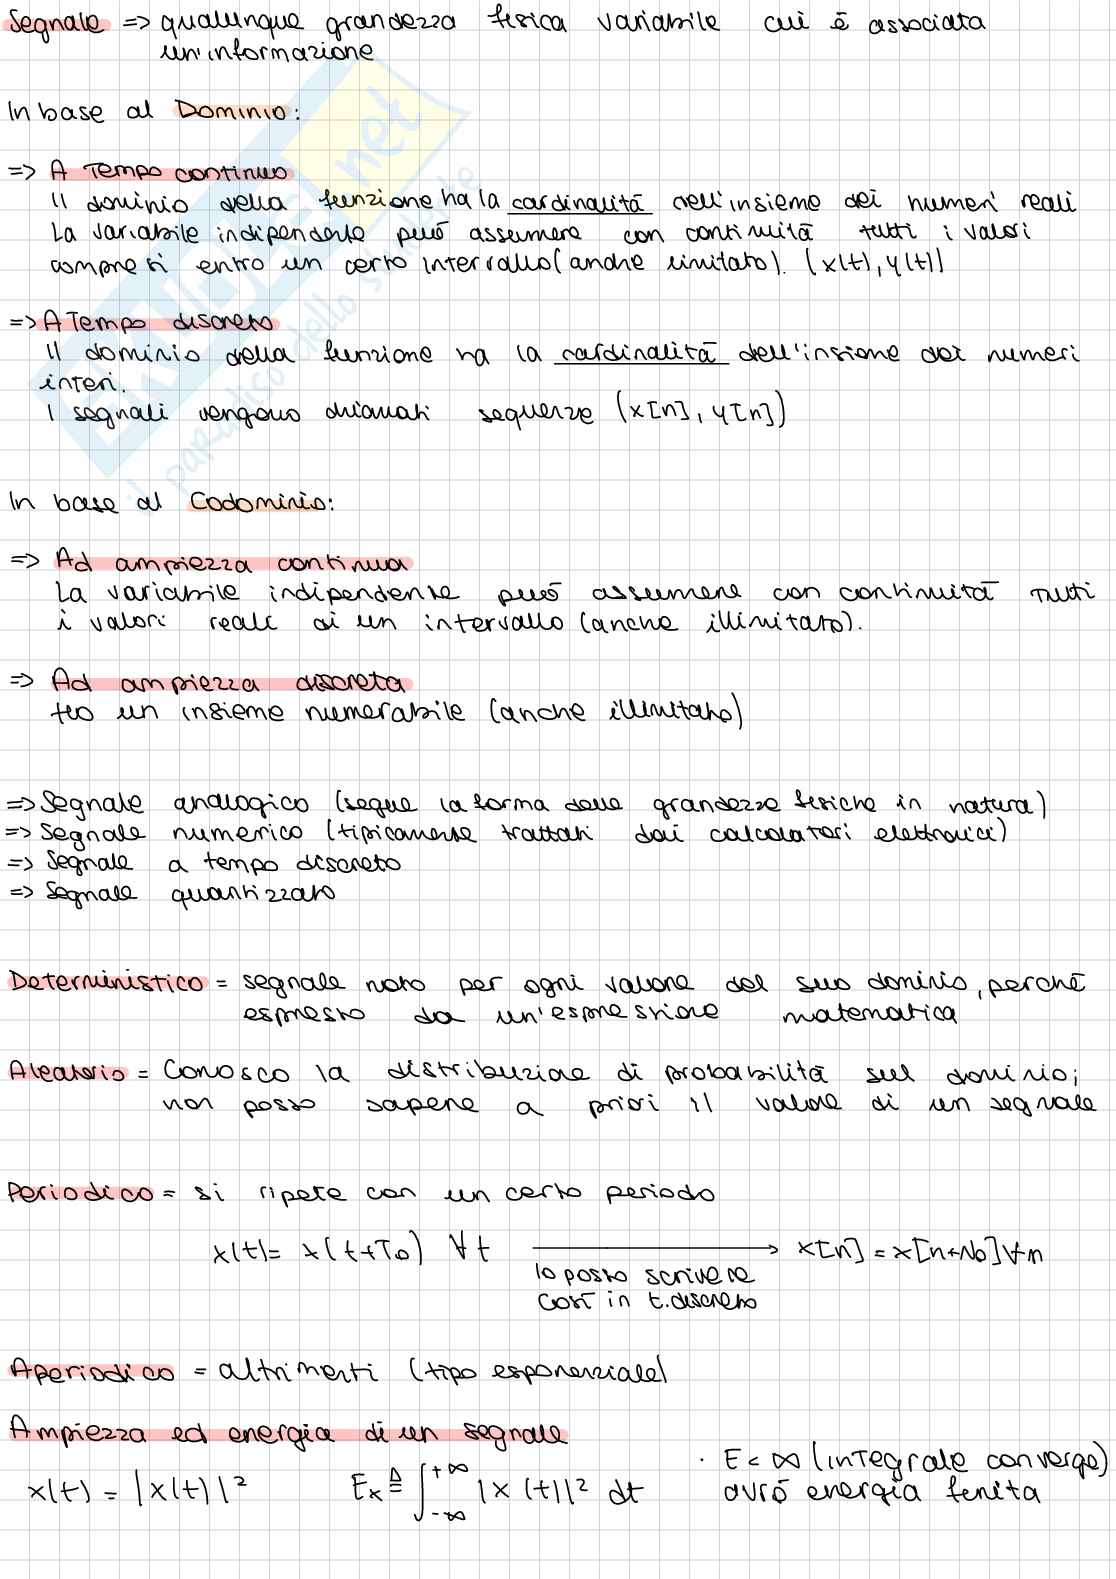 Segnale => qualunque grandezza fisica variabile cui è associata
un'informazione
In base al Dominio:
=> A Tempo continuo
Il dominio della funzione ha la cardinalità dell'insieme dei numeri reali
La variabile indipendente può assumere con continuità tutti i valori
compresi entro un certo intervallo (anche limitato). (x(t), y(t))
=> A Tempo discreto
Il dominio della funzione ha la cardinalità dell'insieme dei numeri
interi.
I segnali vengono chiamati sequenze (x[n], y[n])
In base al Codominio:
=> Ad ampiezza continua
La variabile indipendente può assumere con continuità tutti
i valori reali di un intervallo (anche illimitato).
=> Ad ampiezza discreta
un insieme numerabile (anche illimitato)
=> Segnale analogico (segue la forma delle grandezze fisiche in natura)
=> Segnale numerico (tipicamente trattati dai calcolatori elettronici)
=> Segnale a tempo discreto
=> Segnale quantizzato
Deterministico = segnale noto per ogni valore del suo dominio, perché
espresso da un'espressione matematica
Aleatorio = Conosco la distribuzione di probabilità sul dominio;
non posso sapere a priori il valore di un segnale
Periodico = si ripete con un certo periodo
x(t) = x(t+T₀) ∀t → x[n] = x[n+N₀] ∀n
lo posso scrivere
così in t. discreto
Aperiodico = altrimenti (tipo esponenziale)
Ampiezza ed energia di un segnale
x(t) = |x(t)|² Eₓ ≜ ∫_{-∞}^{+∞} |x(t)|² dt · E < ∞ (integrale converge)
avrò energia finita
.net
il paradiso dello studente